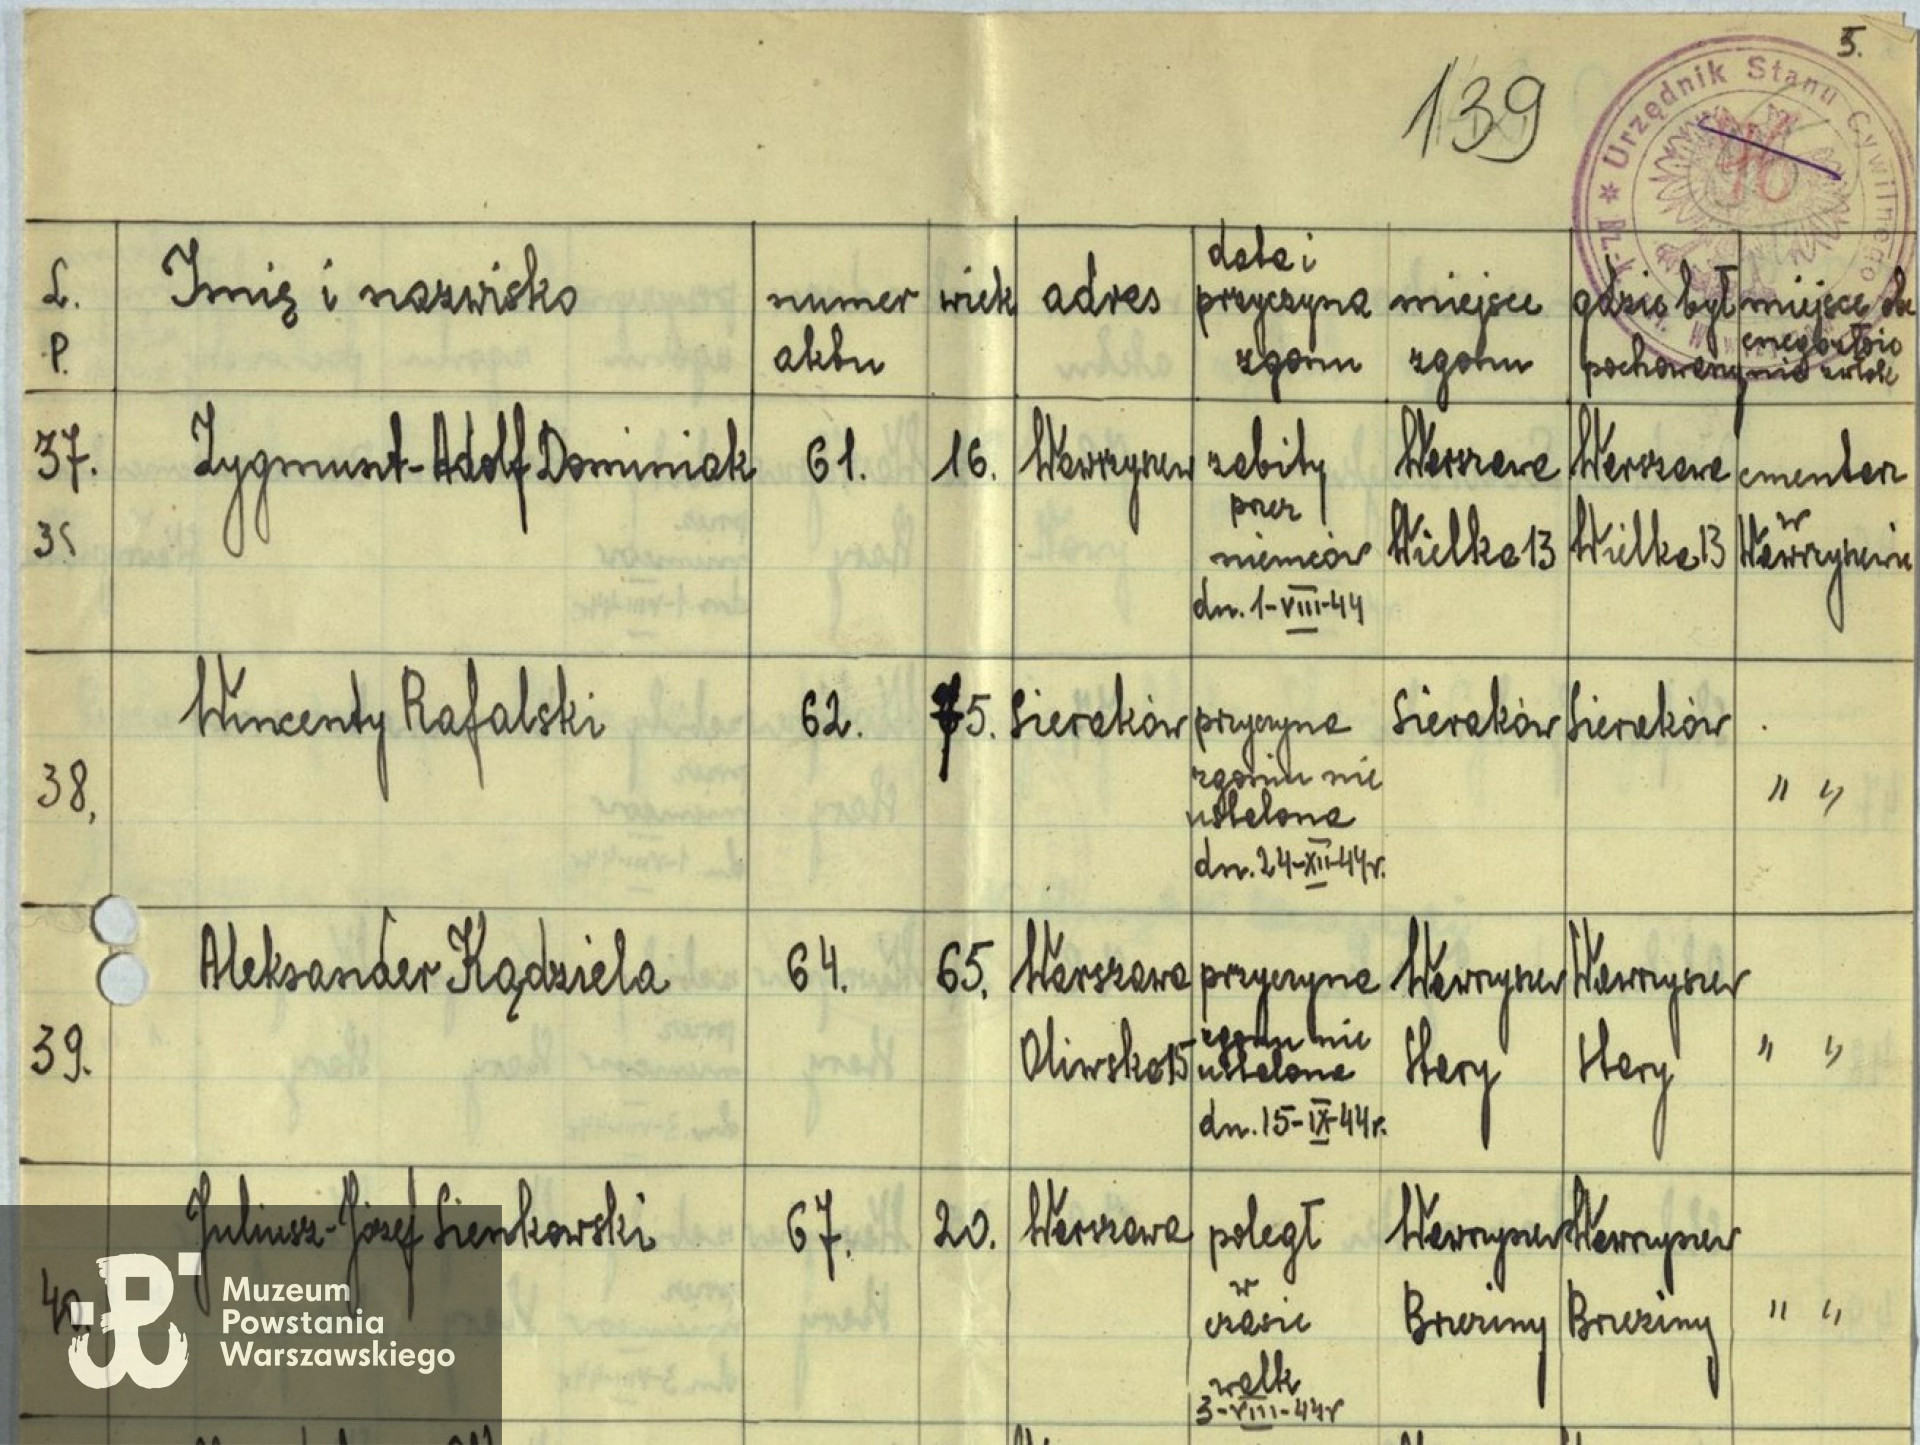 5.
139
✶ Urzędnik Stanu Cywilnego
96
L. P.
Imię i nazwisko
numer aktu
wiek
adres
data i przyczyna zgonu
miejsce zgonu
gdzie był pochowany
miejsce obecnego złożenia zwłok
37.
Zygmunt-Adolf Dominiak
61.
16.
Wawrzyszew
zabity
przez
niemców
dn. 1-VIII-44
Warszawa
Wielka 13
Warszawa
Wielka 13
cmentarz
w
Wawrzyszewie
38,
Wincenty Rafalski
62.
75.
Sieraków
przyczyna
zgonu nie
ustalona
dn. 24-XII-44r.
Sieraków
Sieraków
" "
39.
Aleksander Kądziela
64.
65.
Warszawa
Oliwska 15
przyczyna
zgonu nie
ustalona
dn. 15-IX-44r.
Wawrzyszew
Stary
Wawrzyszew
Stary
" "
40.
Juliusz-Józef Sienkowski
67.
20.
Warszawa
poległ
w
czasie
walk
3-VIII-44r
Wawrzyszew
Brzeziny
Wawrzyszew
Brzeziny
" "
Muzeum
Powstania
Warszawskiego